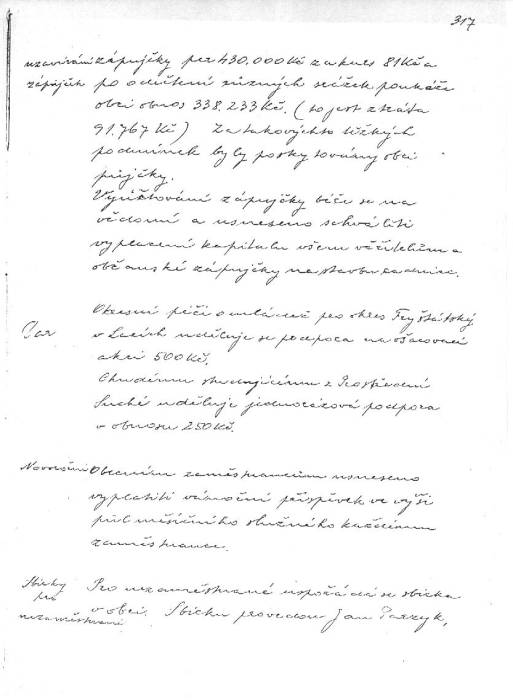 317
uzavírání zápujčky per 430.000 Kč za kurs 81 Kč a
zápůjček po odečtení různých srážek poukáže
obci obnos 338.233 Kč. (to jest ztráta
91.767 Kč) Za takovýchto těžkých
podmínek byly poskytovány obci
půjčky.
Vyúčtování zápujčky béře se na
vědomí a usneseno schváliti
vyplacení kapitalu všem věřitelům a
občanské zápujčky na stavbu radnice.
Okresní péči o mládež pro okres Fryštátský
v Lazích uděluje se podpora na ošacovací
akci 500 Kč.
Chudému studujícímu z Prostřední
Suché uděluje jednorázová podpora
v obnosu 250 Kč.
Novoroční Obecním zaměstnancům usneseno
vyplatiti vánoční příspěvek ve výši
půl měsíčního služného každému
zaměstnanci.
Sbírky Pro nezaměstnané uspořádá se sbírka
pro v obci. Sbírku provedou Jan Parzyk,
nezaměstnané